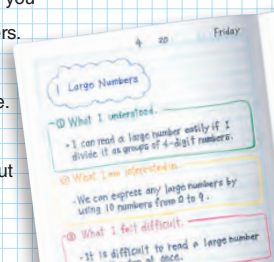 you
ers.
e.
out
4 20 Friday
1 Large Numbers
① What I understood.
・I can read a large number easily if I
divide it as groups of 4-digit numbers.
② What I am interested in.
・We can express any large numbers by
using 10 numbers from 0 to 9.
③ What I felt difficult.
・It is difficult to read a large number
at once.